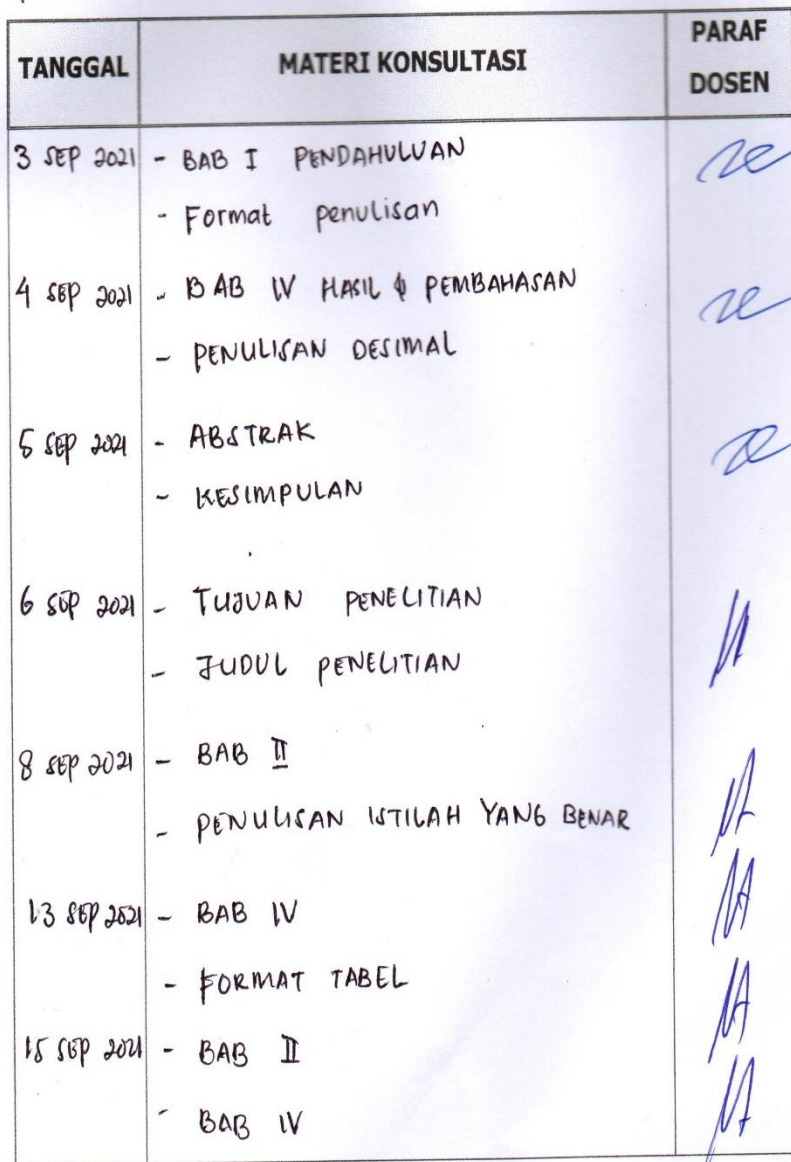 TANGGAL MATERI KONSULTASI PARAF DOSEN
3 SEP 2021 - BAB I PENDAHULUAN
- Format penulisan
4 SEP 2021 - BAB IV HASIL & PEMBAHASAN
- PENULISAN DESIMAL
5 SEP 2021 - ABSTRAK
- KESIMPULAN
6 SEP 2021 - TUJUAN PENELITIAN
- JUDUL PENELITIAN
8 SEP 2021 - BAB II
- PENULISAN ISTILAH YANG BENAR
13 SEP 2021 - BAB IV
- FORMAT TABEL
15 SEP 2021 - BAB II
- BAB IV